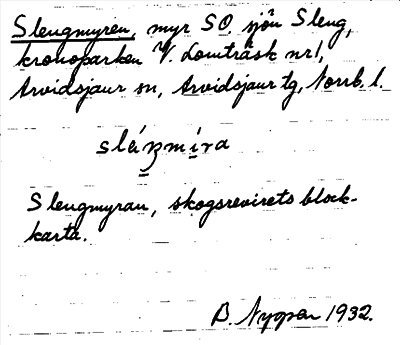 Slengmyren, myr SO sjön Sleng,
kronoparken V. Lomträsk nr 1,
Arvidsjaur sn, Arvidsjaur tg, Norrb. l.
Slengmyran, skogsrevirets block-
karta.
B. Nygren 1932.